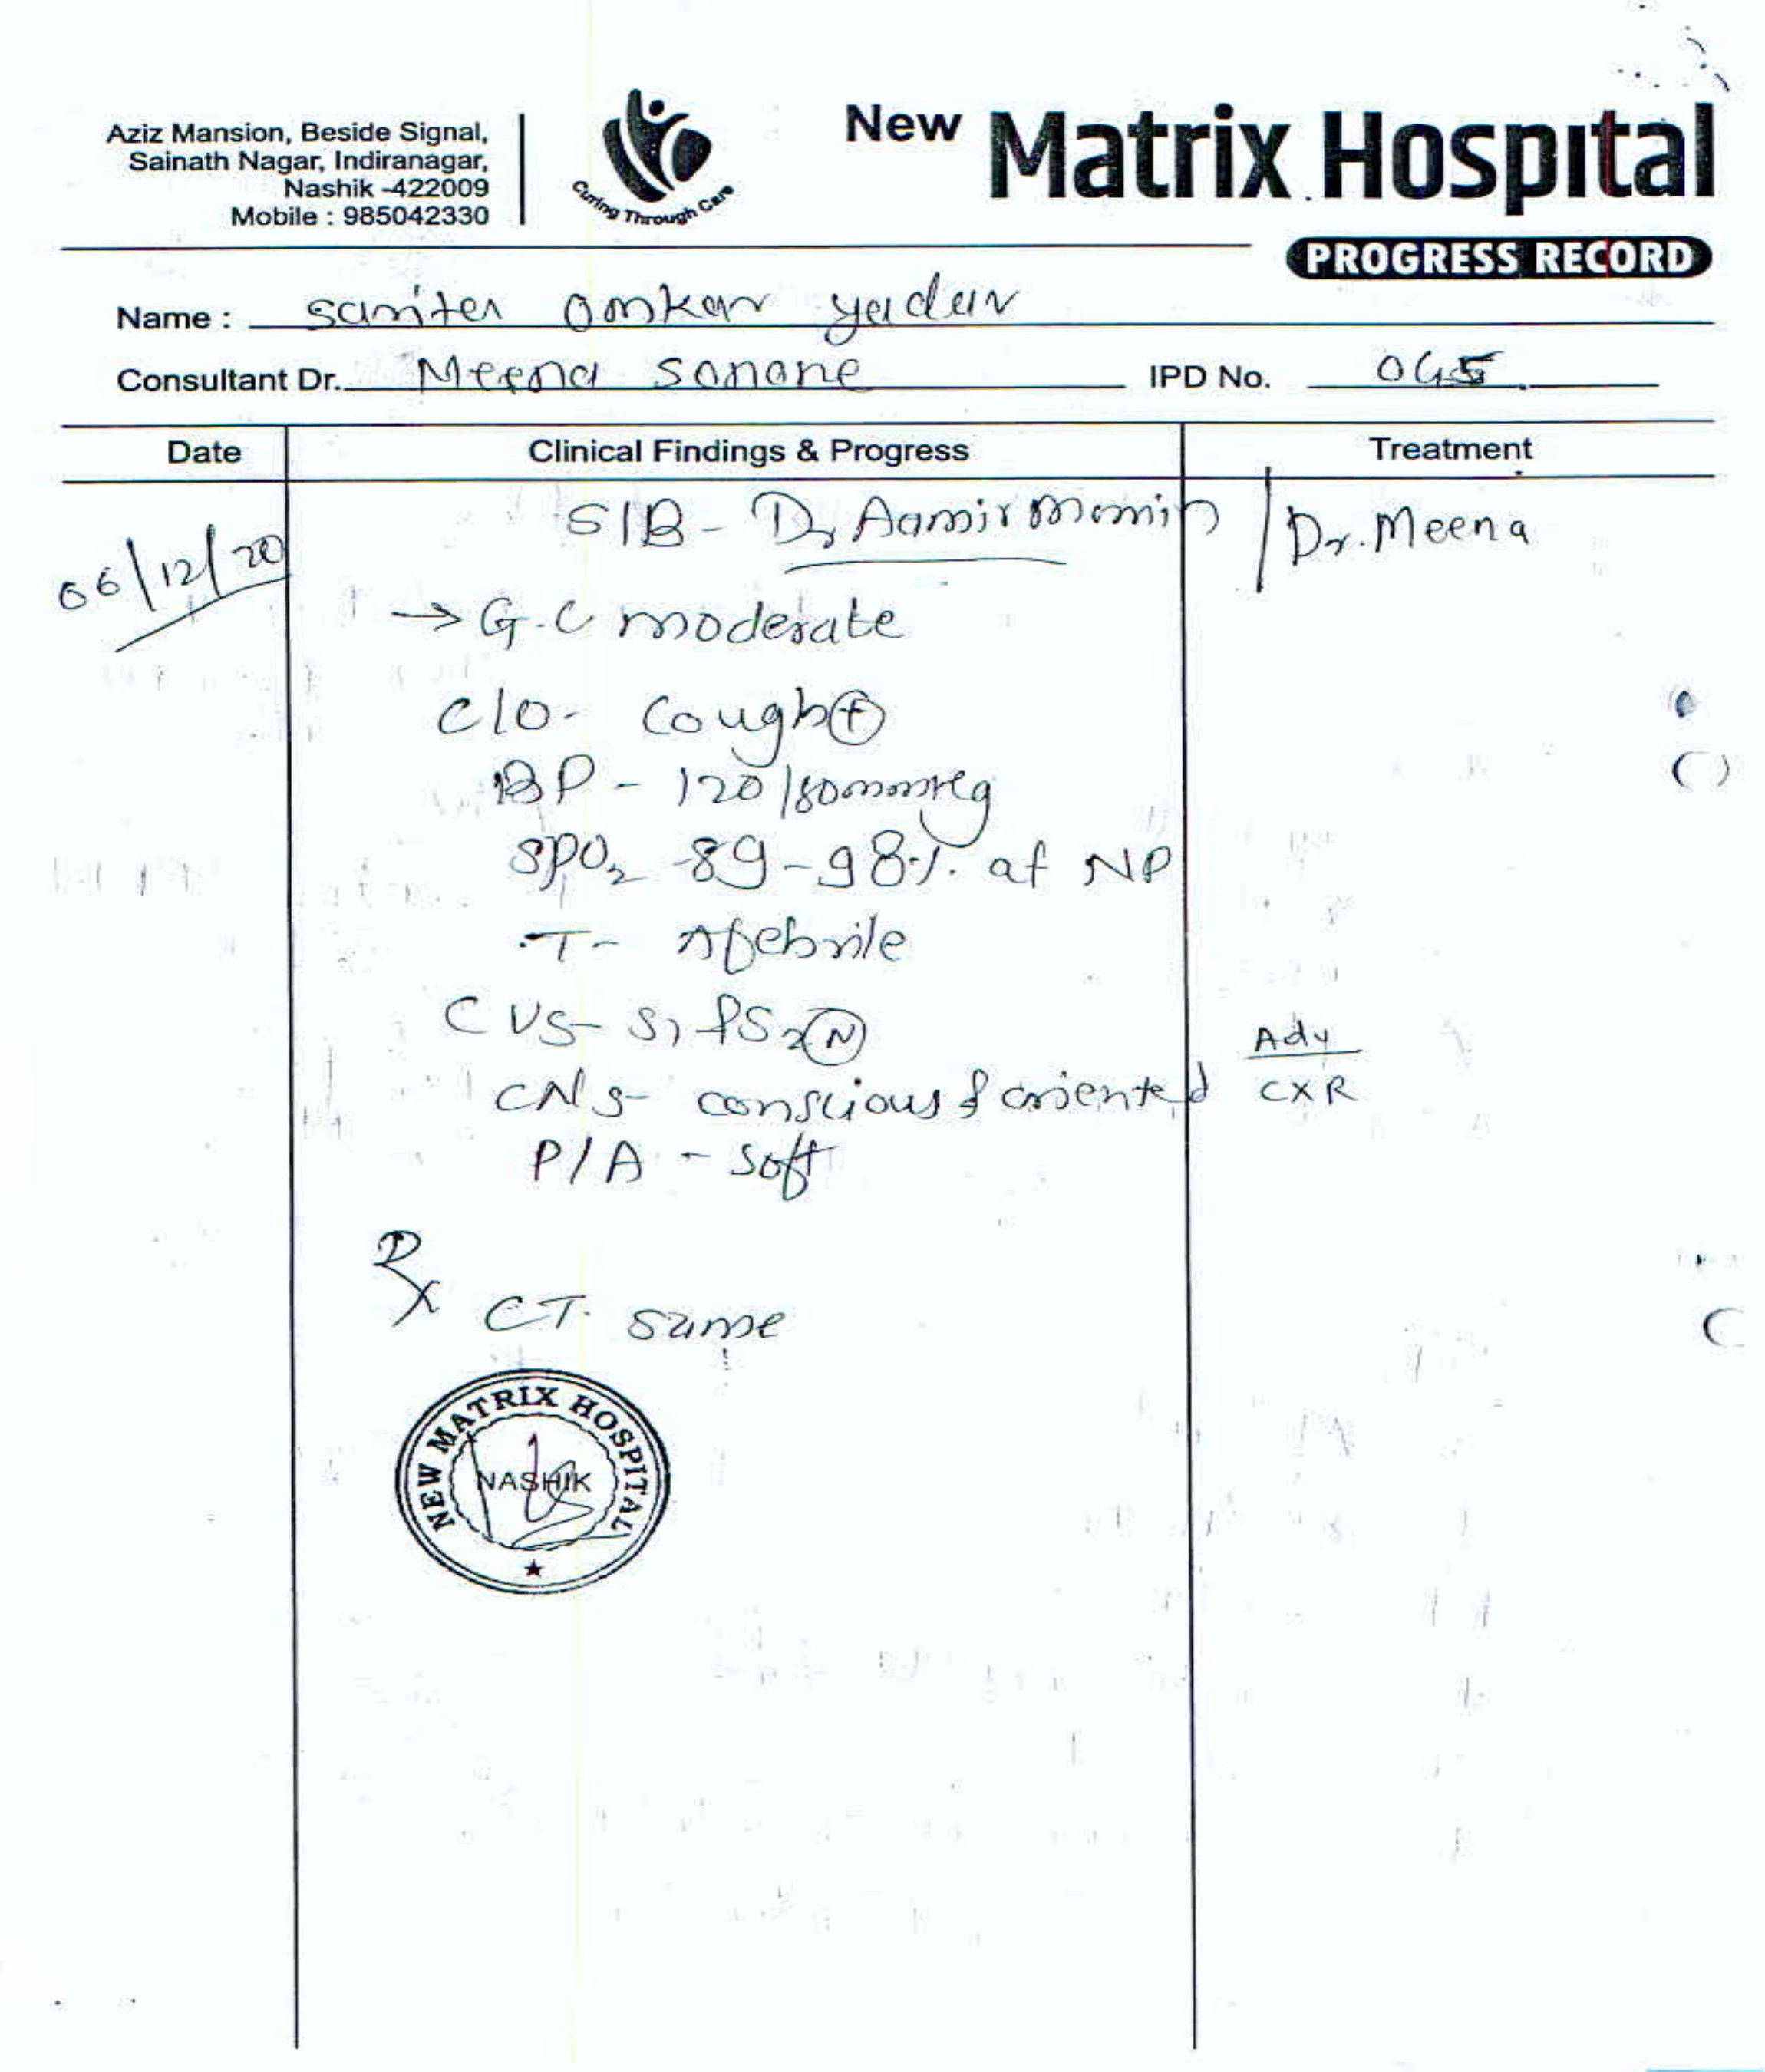 Aziz Mansion, Beside Signal,
Sainath Nagar, Indiranagar,
Nashik -422009
Mobile : 985042330
Curing Through Care
New Matrix Hospital
PROGRESS RECORD
Name : omkar yadav
Consultant Dr. Meena sonone IPD No.
Date Clinical Findings & Progress Treatment
06/12/20 S/B - Dr Aamir momin / Dr. Meena
→ G.C moderate
C/O - Cough ⊕
BP - 120/80mmHg
SPO₂ - 89-98% at NP
T - Afebrile
CVS - S₁ & S₂ Ⓝ
Adv
CNS - conscious & oriented CXR
P/A - soft
Rx CT. same
NEW MATRIX HOSPITAL
NASHIK